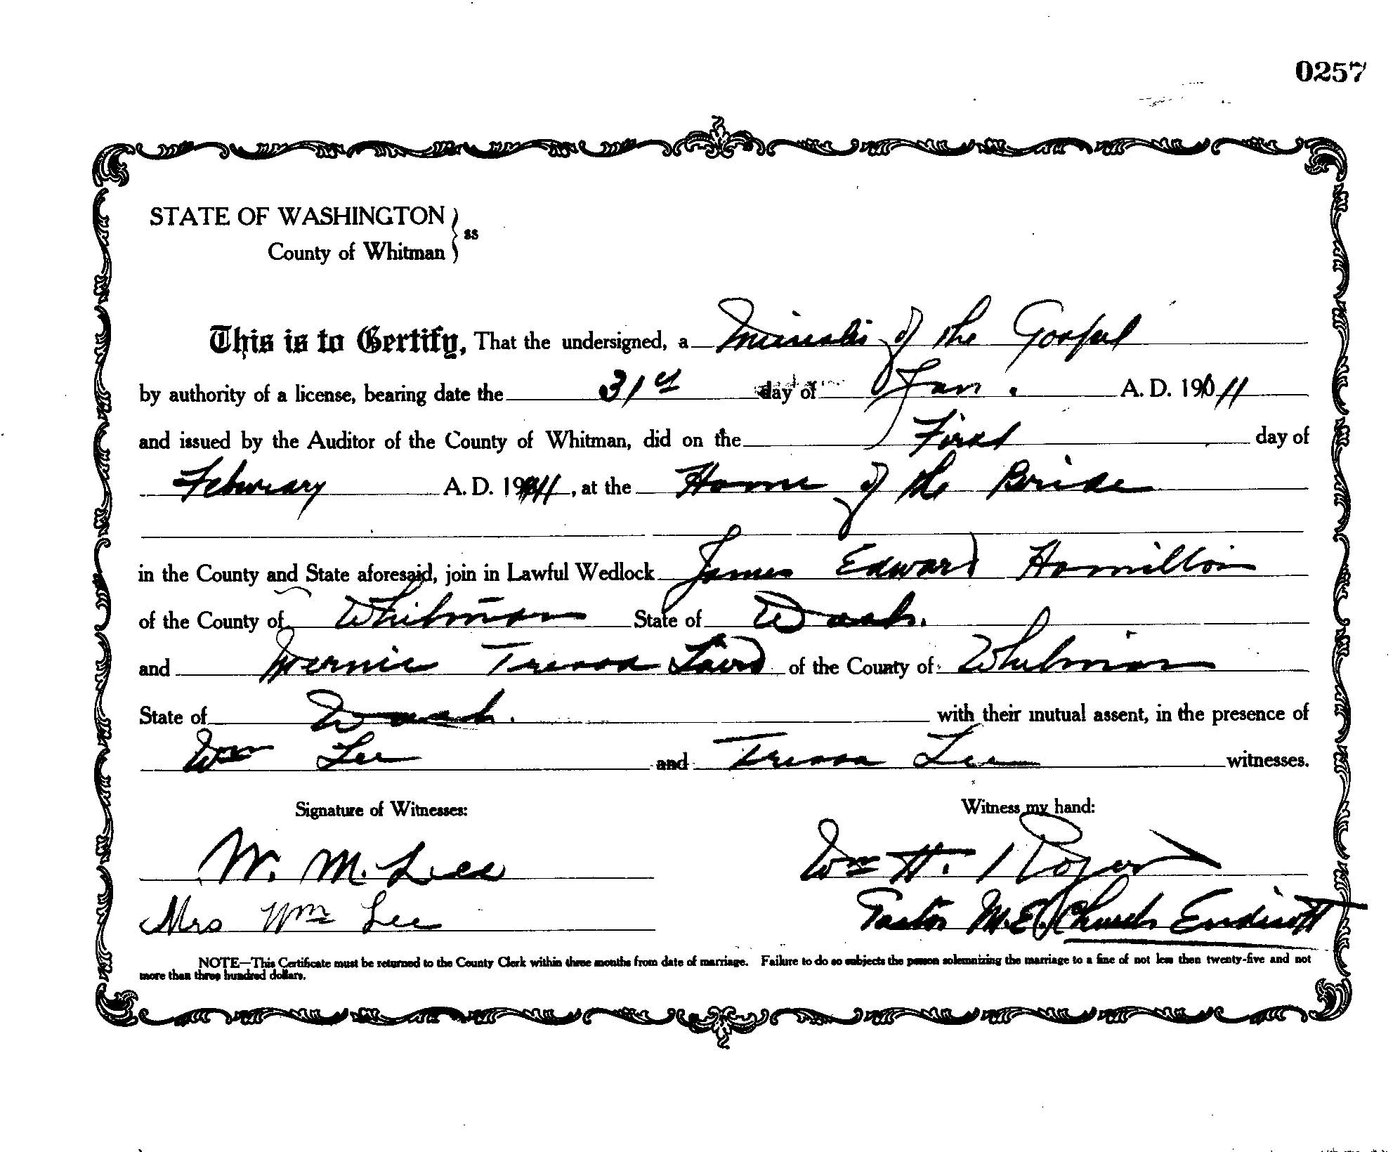 0257
STATE OF WASHINGTON
County of Whitman } ss
This is to Certify, That the undersigned, a Minister of the Gospel
by authority of a license, bearing date the 31st day of Jan. A. D. 1911
and issued by the Auditor of the County of Whitman, did on the First day of
February A. D. 1911, at the Home of the Bride
in the County and State aforesaid, join in Lawful Wedlock James Edward Hamilton
of the County of Whitman State of Wash.
and Tressa Laird of the County of Whitman
State of Wash. with their mutual assent, in the presence of
Wm Lee and Tressa Lee witnesses.
Signature of Witnesses: Witness my hand:
W. M. Lee Wm H.
Mrs Wm Lee Pastor M.E. Church Endicott
NOTE—This Certificate must be returned to the County Clerk within three months from date of marriage. Failure to do so subjects the person solemnizing the marriage to a fine of not less then twenty-five and not
more than three hundred dollars.